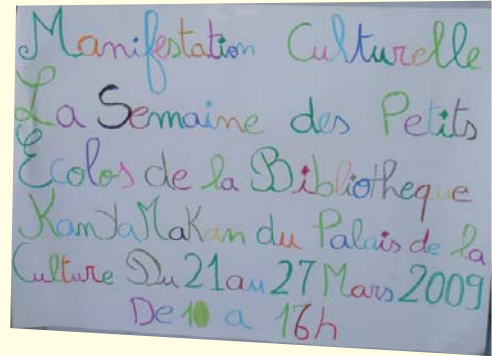 Manifestation Culturelle
La Semaine des Petits
Ecolos de la Bibliotheque
KanYaMaKan du Palais de la
Culture Du 21 au 27 Mars 2009
De 10 a 16h